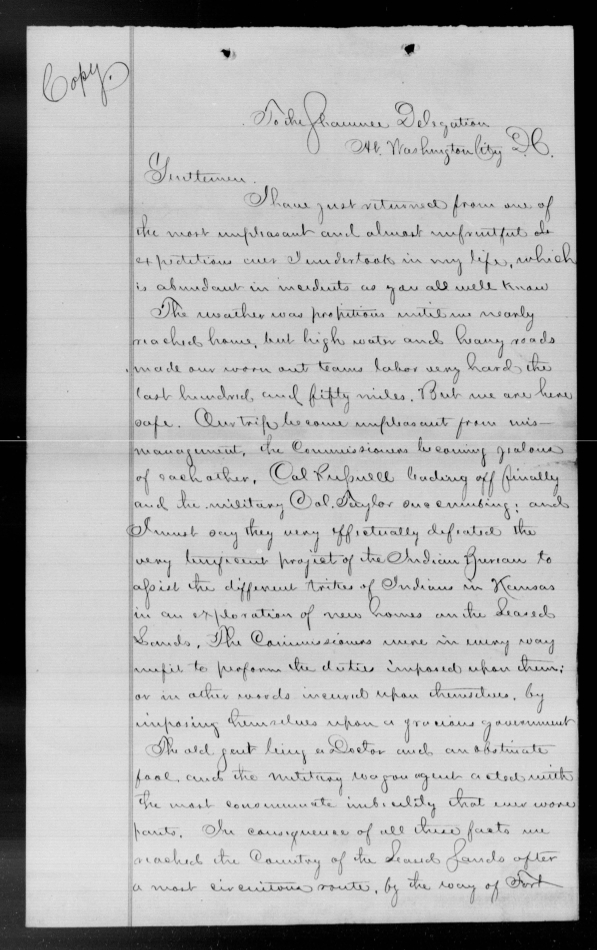 Copy.
To the Shawnee Delegation
At. Washington City D.C.
Gentlemen.
I have just returned from one of
the most unpleasant and almost unfruitful
expeditions ever I undertook in my life, which
is abundant in incidents as you all well know
The weather was propitious until we nearly
reached home, but high water and heavy roads
made our worn out teams labor very hard the
last hundred and fifty miles. But we are here
safe. Our trip become unpleasant from mis-
management, the Commissioners becoming jealous
of each other, Col. leading off finally
and the military Col. Taylor succumbing; and
I must say they very effectually defeated the
very beneficent project of the Indian Bureau to
assist the different tribes of Indians in Kansas
in an exploration of new homes on the Leased
Lands. The Commissioners were in every way
unfit to perform the duties imposed upon them;
or in other words incured upon themselves, by
imposing themselves upon a gracious government
The old gent being a Doctor and an obstinate
fool, and the military wagon agent acted with
the most consummate imbicility that ever wore
pants. In consequence of all these facts we
reached the Country of the Leased Lands after
a most circuitous route, by the way of Fort